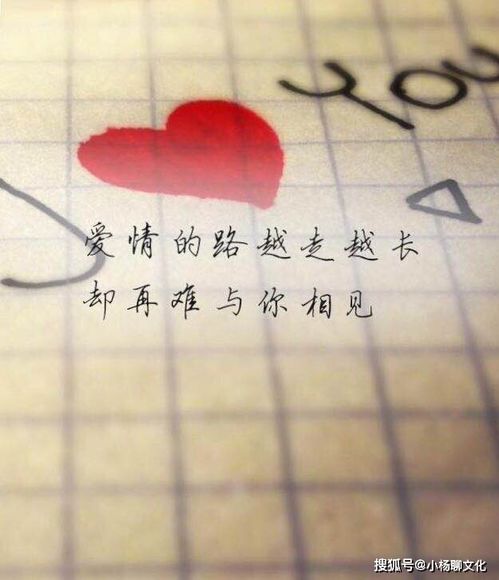 YOU
爱情的路越走越长
却再难与你相见
搜狐号@小杨聊文化